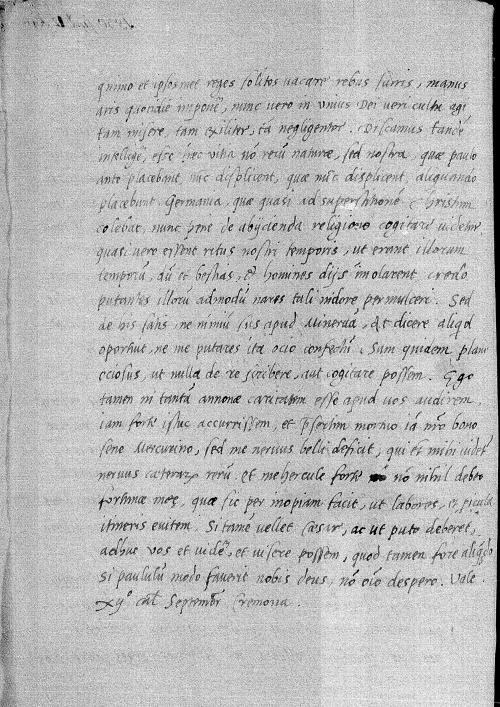 quino et ipsosmet reges solitos vacare rebus sacris, manus
aris quotidie imponē, nunc vero in unius Dei veri cultu agi
tam misere, tam exiliter, tā negligenter. Discamus tandē
intelligē, esse hec vitia nō rerū naturæ, sed nostra, quæ paulo
ante placebant, nūc displicent, quæ nūc displicent, aliquando
placebunt. Germania, quæ quasi ad superstitionē Christum
colebat, nunc de abijcienda religione cogitare videtur
quasi vero essent ritus nostri temporis, ut erant illorum
temporū, cū et bestias, et homines dijs īmolarent credo
putantes illorū admodū nares tali nidore permulceri. Sed
de his satis, ne nimiū sus apud Minervā, Et dicere aliqd
oportuit, ne me putares ita ocio confectū. Sum quidem plane
occiosus, ut nulla de re scribere, aut cogitare possem. Ego
tamen in tantā annonæ caritatem esse apud vos audirem,
iam forte istuc accurrissem, et p̄sertim mortuo iā nr̄o bono
sene Mercurino, sed me nervus belli deficit, qui et mihi videt
nervus cæterarū rerū. et mehercule forte nō nihil debeo
fortunæ meę, quæ sic per inopiam facit, ut labores, et picula
itineris evitem. Si tamē vellet Cæsar, ac ut puto deberet,
adhuc vos et vidē, et visere possem, quod tamen fore aliqdo
si paululū modo faverit nobis deus, nō oīo despero. Vale
cal Septembr Cremona.